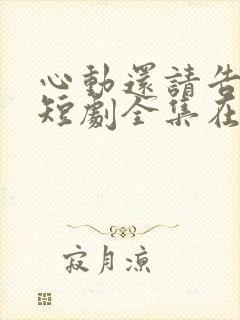 心動還請告
短劇全集在
寂月凉